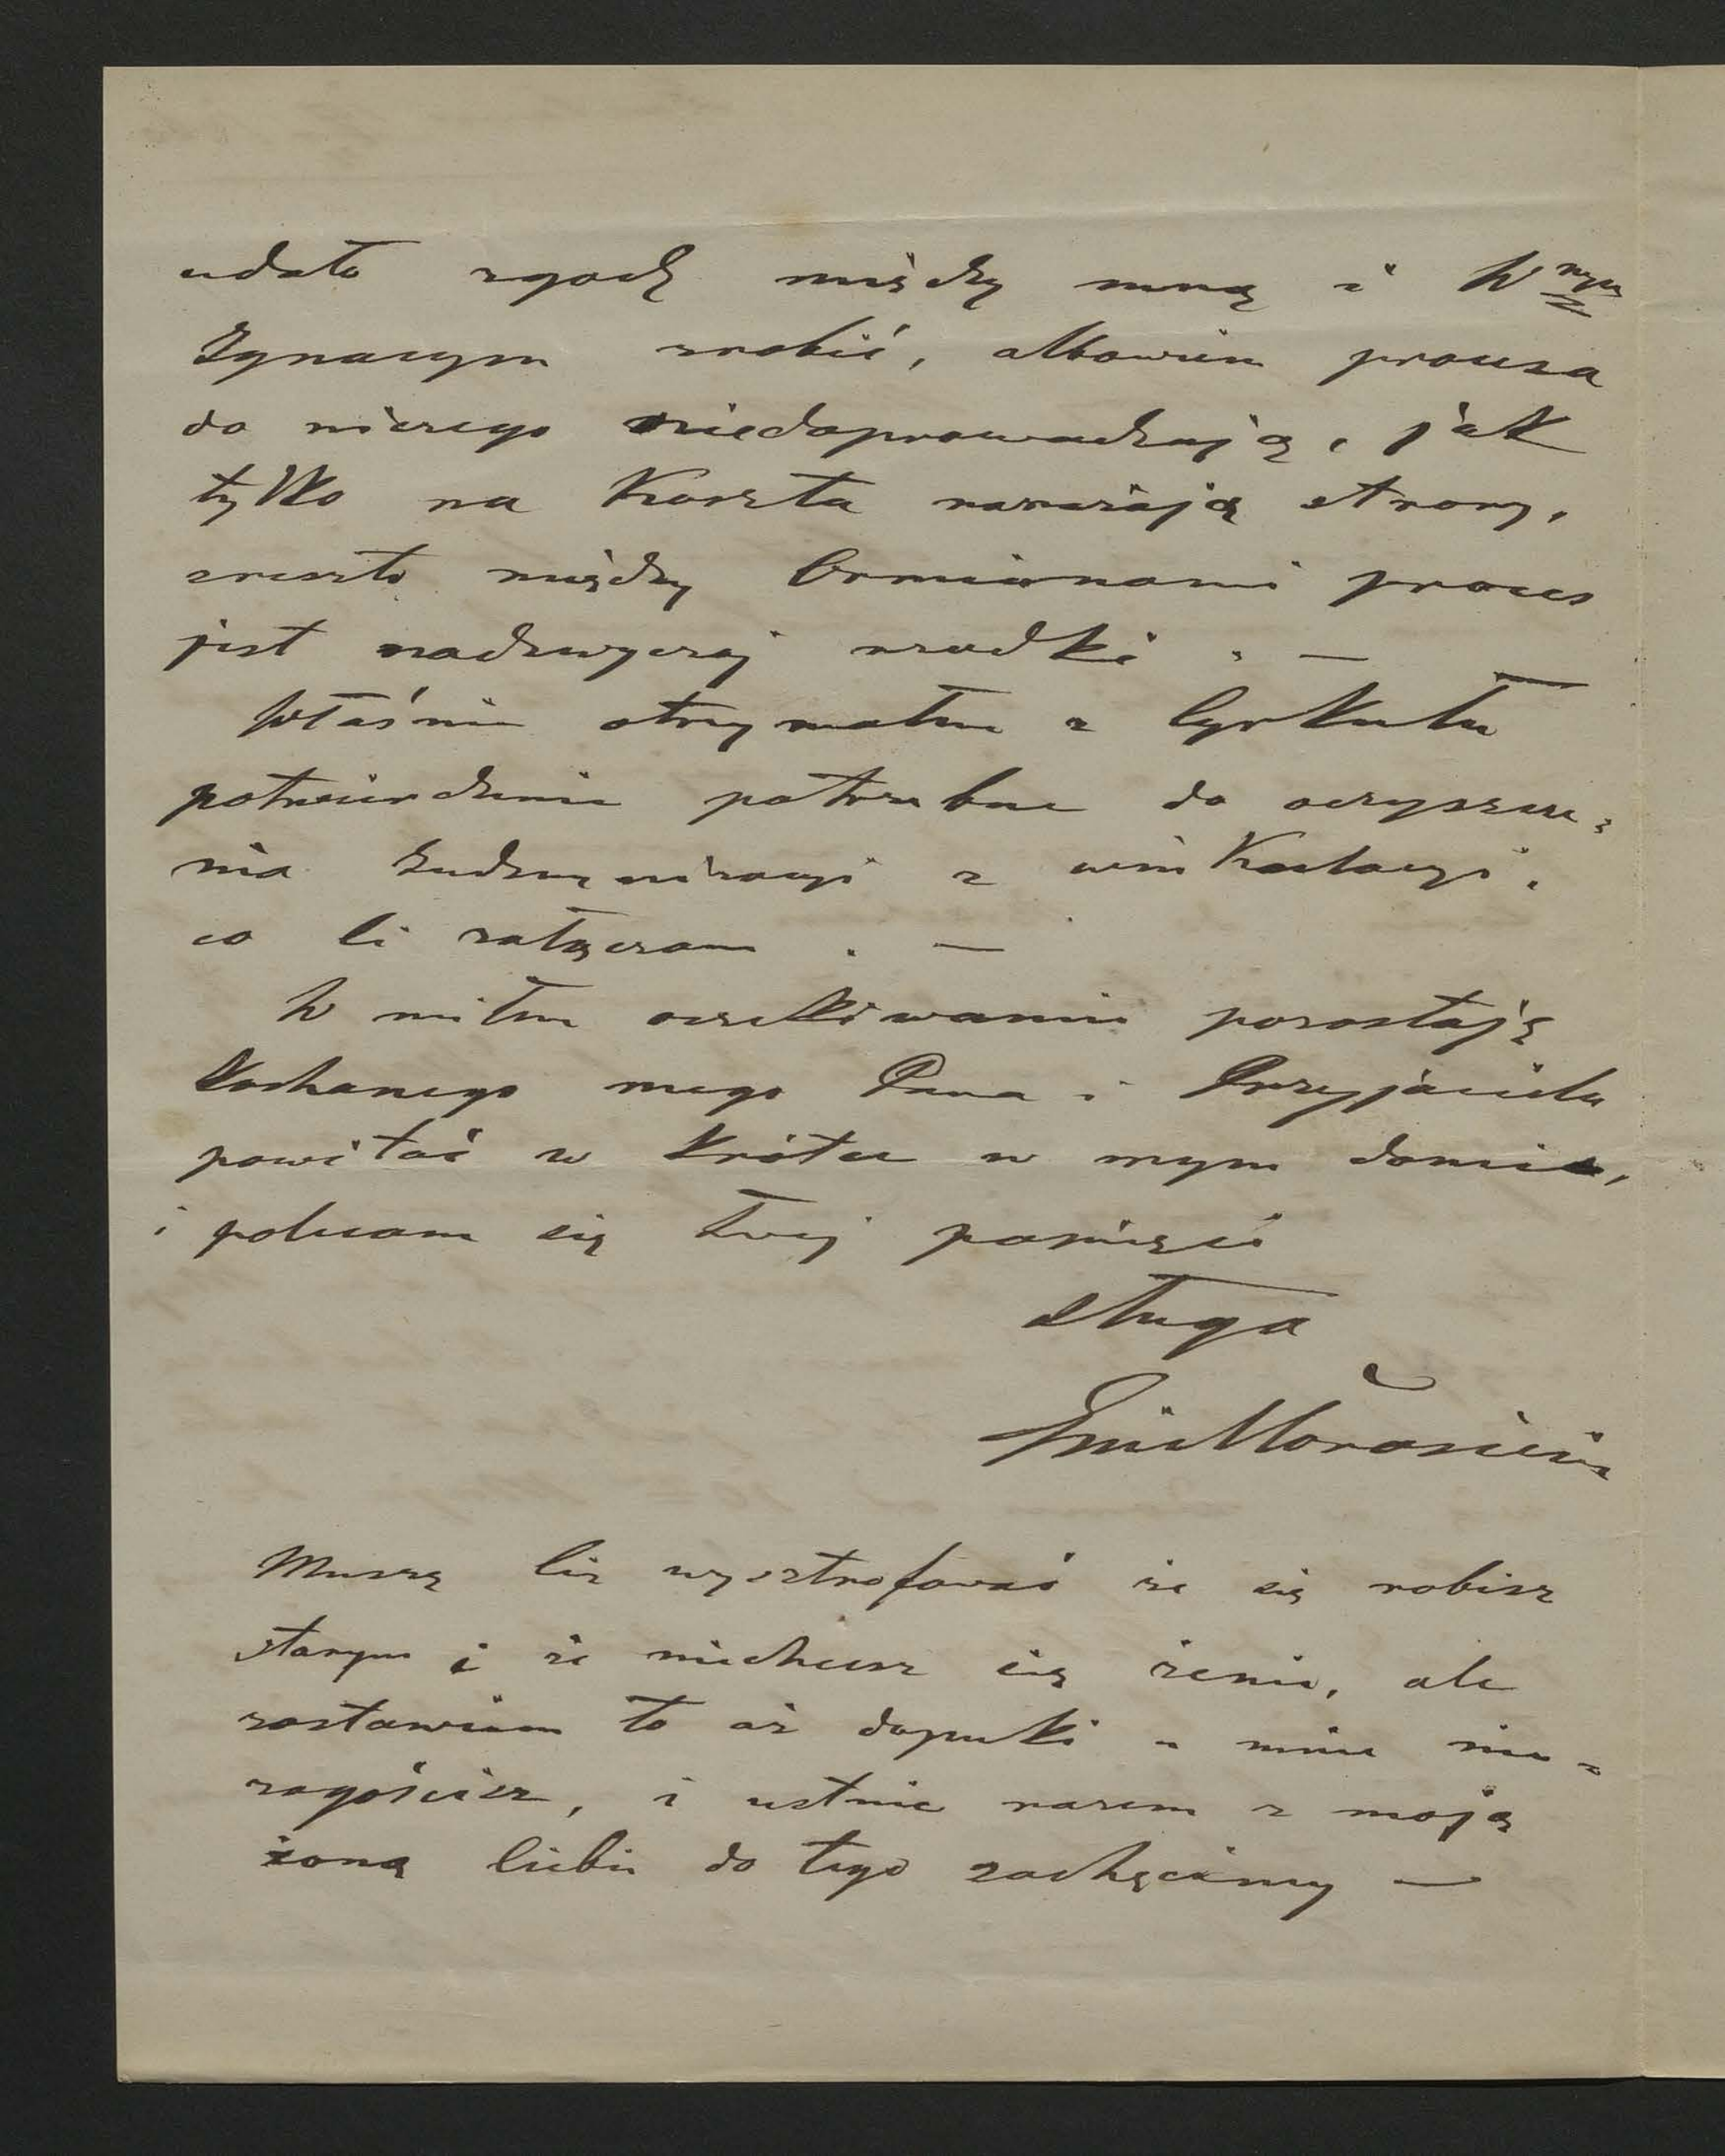 udało zgodę między mną i W<sup>nym</sup>
Ignacym zrobić, albowiem procesa
do niczego niedoprowadzają, jak
tylko na koszta narażają strony,
zresztą między Ormianami proces
jest nadzwyczaj rzadki. —
Właśnie otrzymałem z Cyrkułu
potwierdzenie potrzebne do oczyszcze-
nia Indemnizacyi z winkulacyi,
co Ci załączam. —
W miłem oczekiwaniu pozostaję
Kochanego mego Pana i Przyjaciela
powitać w krótce w mym domie,
i polecam się Twej pamięci
sługa
Muszę Cię wysztrofować że się robisz
starym i że niechcesz się żenić, ale
zostawiam to aż dopuki u mnie nie-
zagościsz, i ustnie razem z moją
żoną Ciebie do tego zachęcimy —